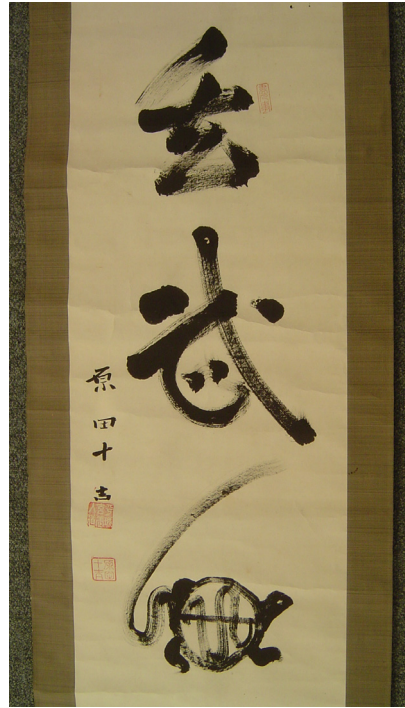 玄武
原田十吉